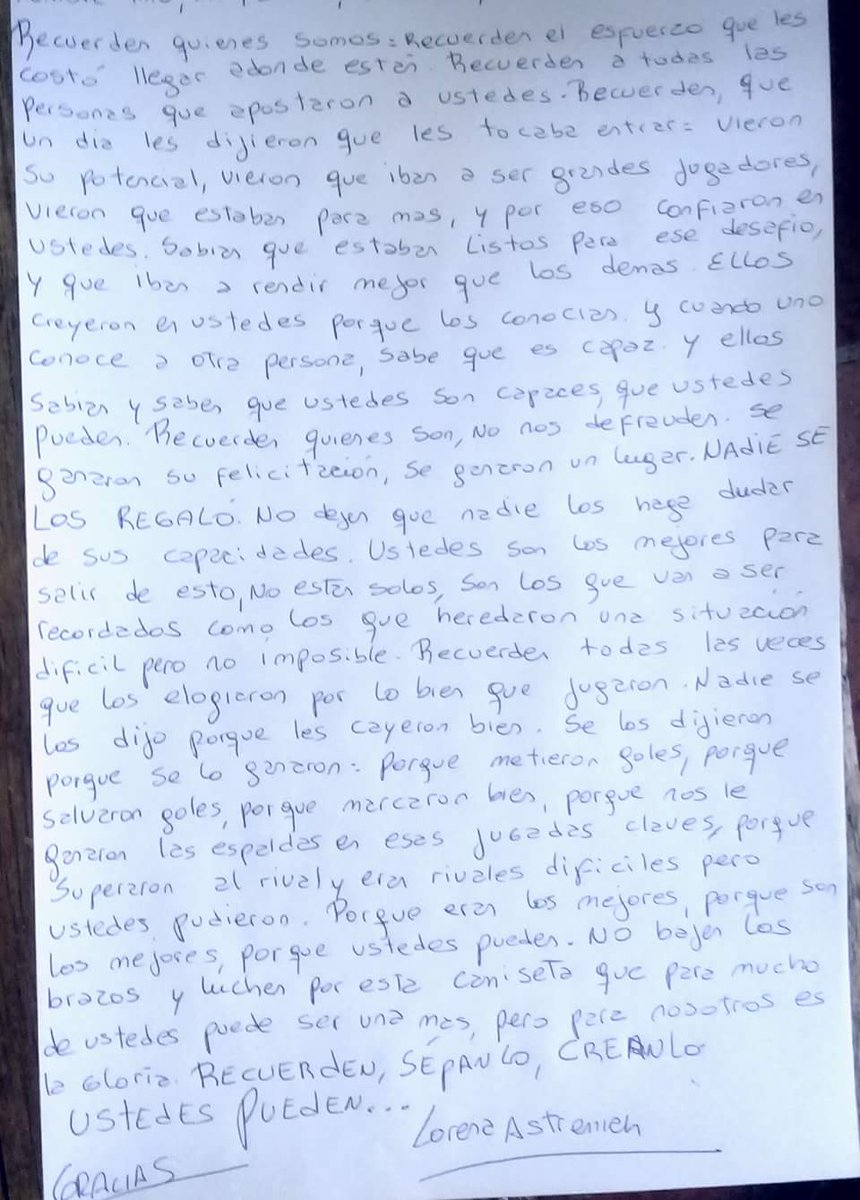 Recuerden quienes somos = Recuerden el esfuerzo que les
costó llegar adonde están. Recuerden a todas las
personas que apostaron a ustedes. Recuerden, que
un dia les dijieron que les tocaba entrar = vieron
su potencial, vieron que iban a ser grandes jugadores,
vieron que estaban para mas, y por eso confiaron en
ustedes. Sabian que estaban listos para ese desafio,
y que iban a rendir mejor que los demas. ELLOS
creyeron en ustedes porque los conocian. y cuando uno
conoce a otra persona, sabe que es capaz. y ellos
sabian y saben que ustedes son capaces, que ustedes
pueden. Recuerden quienes son, No nos defrauden. se
ganaron su felicitación, se ganaron un lugar. NADIE SE
LOS REGALÓ. NO dejen que nadie los haga dudar
de sus capacidades. Ustedes son los mejores para
salir de esto, No están solos, son los que van a ser
recordados como los que heredaron una situación
dificil pero no imposible. Recuerden todas las veces
que los elogiaron por lo bien que jugaron. Nadie se
los dijo porque les cayeron bien. Se los dijieron
porque se lo ganaron = porque metieron goles, porque
salvaron goles, porque marcaron bien, porque nos le
ganaron las espaldas en esas jugadas claves, porque
superaron al rival y eran rivales dificiles pero
ustedes pudieron. Porque eran los mejores, porque son
los mejores, porque ustedes pueden. NO bajen los
brazos y luchen por esta camiseta que para mucho
de ustedes puede ser una mas, pero para nosotros es
la Gloria. RECUERDEN, SÉPANLO, CREANLO
USTEDES PUEDEN...
Lorena
GRACIAS